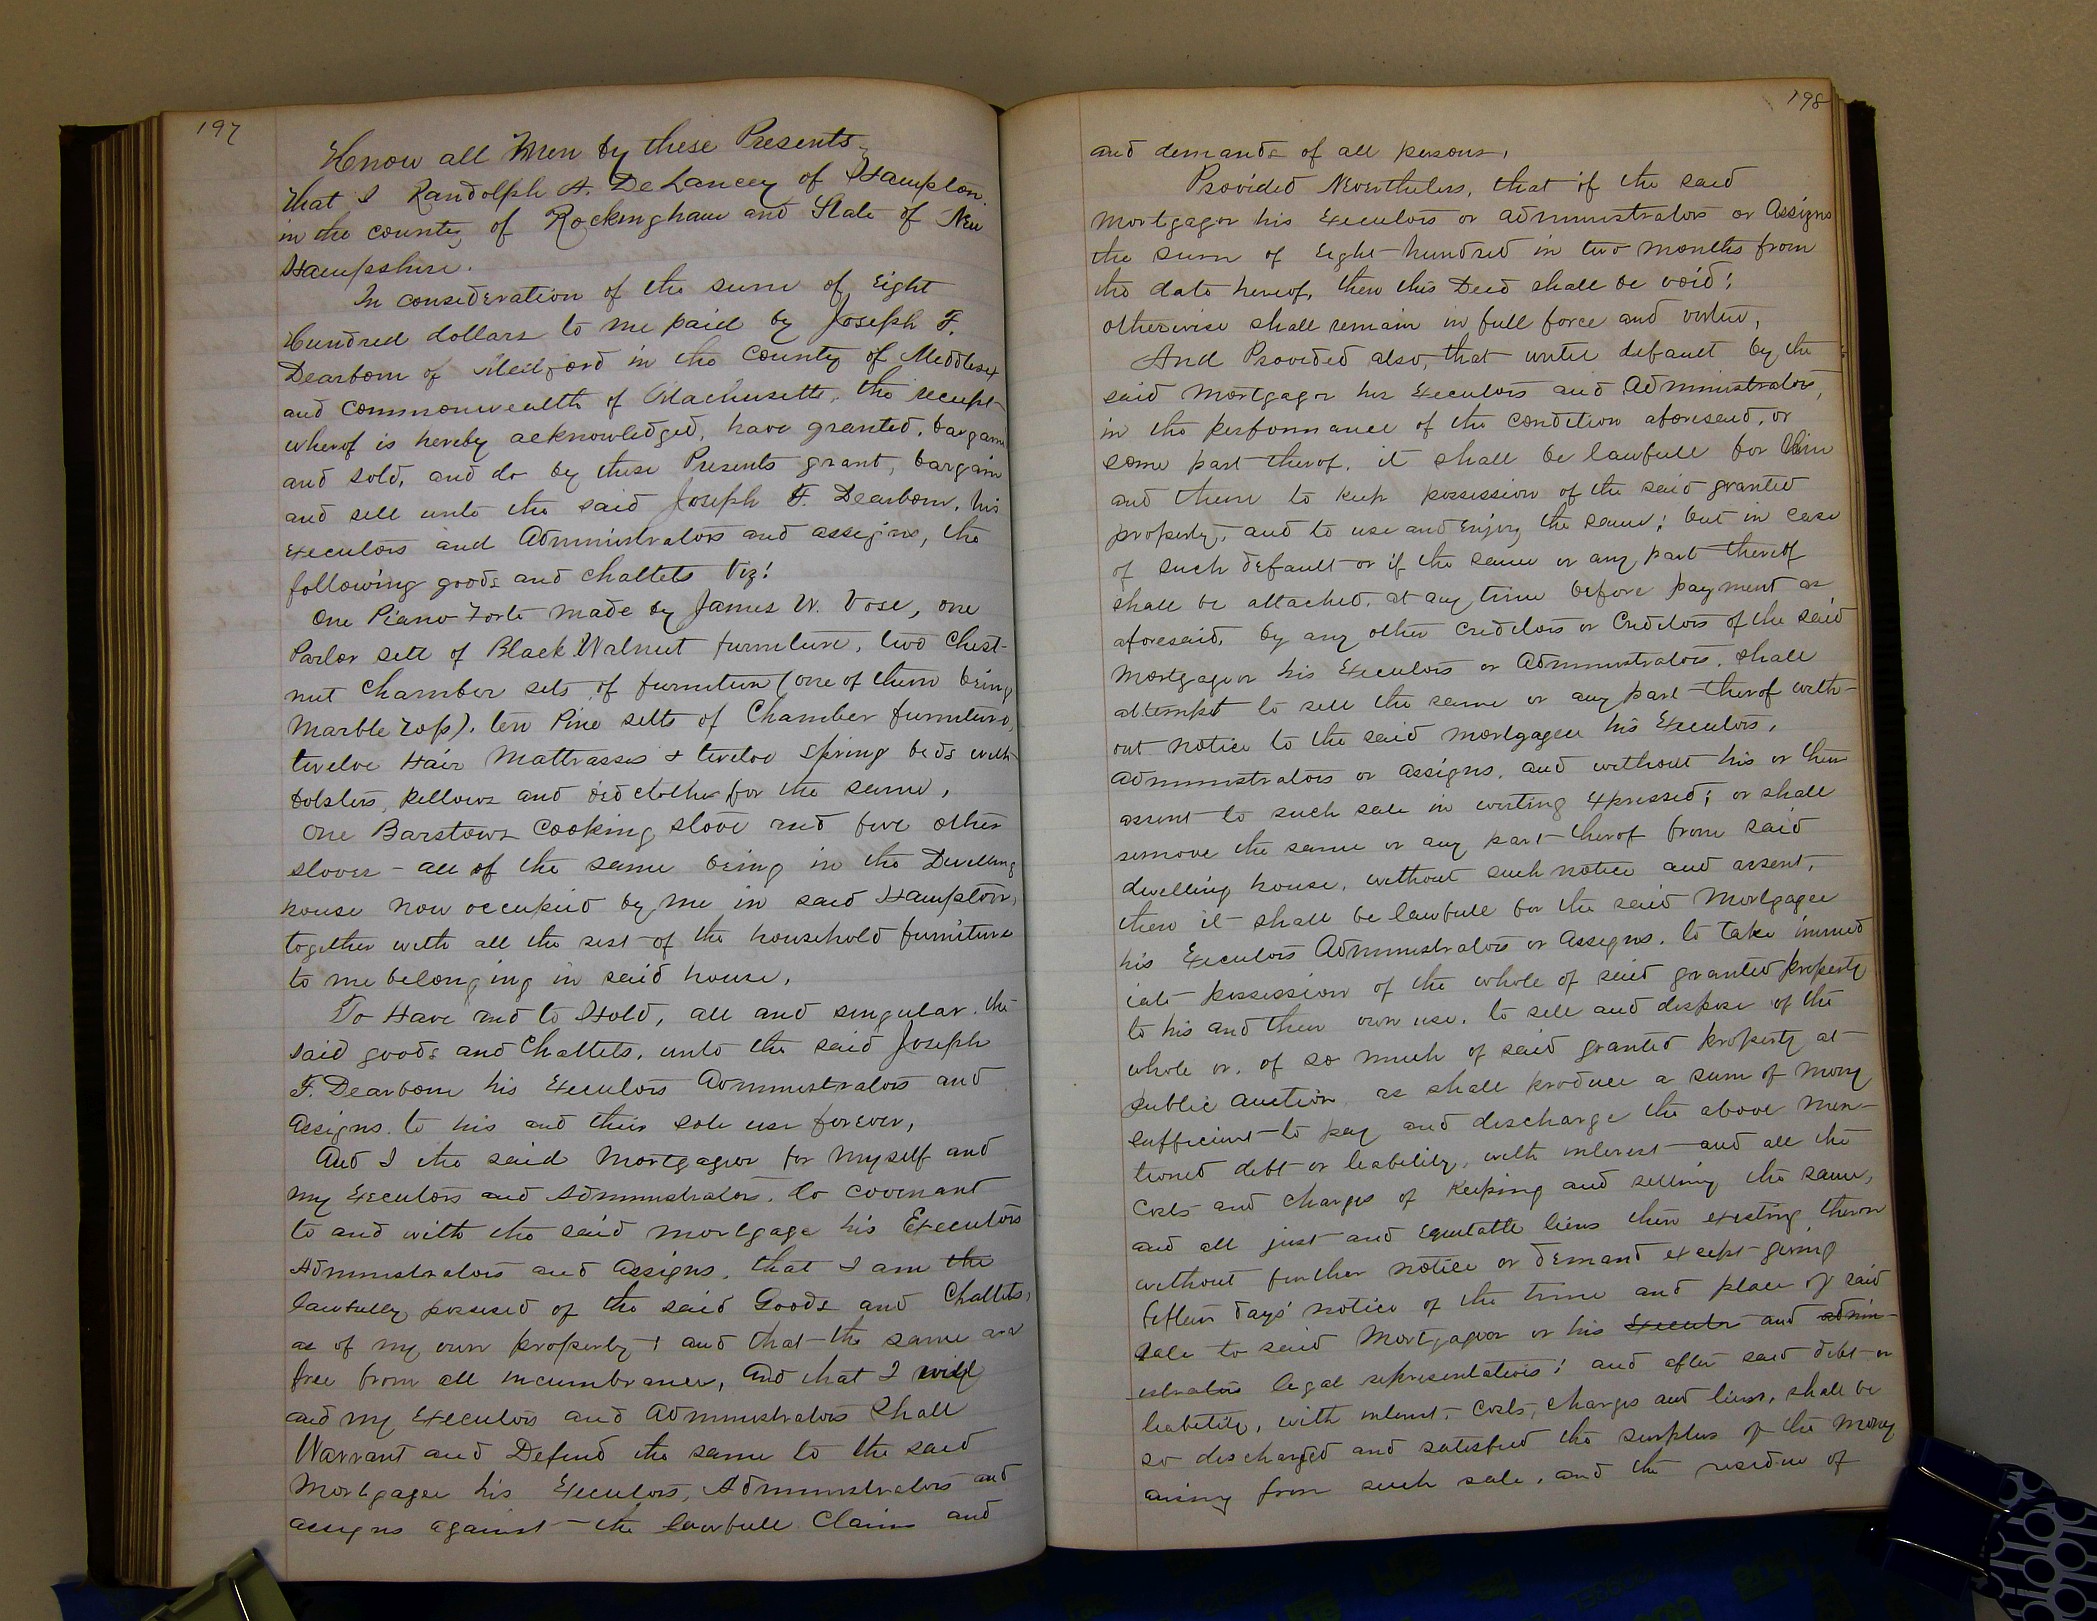 197
Know all Men by these Presents,
that I Randolph A. DeLancey of Hampton.
in the county of Rockingham and State of New
Hampshire.
In consideration of the sum of Eight
Hundred dollars to me paid by Joseph F.
Dearborn of Medford in the County of Middlesex
and commonwealth of Massachusetts, the receipt
wherof is hereby acknowledged, have granted, bargain
and sold, and do by these Presents grant, bargain
and sell unto the said Joseph F. Dearborn, his
Executors and Administrators and assigns, the
following goods and chattels Viz!
One Piano Forte made by James W. Vose, one
Parlor sett of Black Walnut furniture, two Chest-
nut Chamber sets of furniture (one of them being
Marble Top). ten Pine setts of Chamber furniture,
twelve Hair Mattrasses & twelve spring beds with
bolsters, pillows and bedclothes for the same,
One Barstows Cooking stove and five other
stoves - all of the same being in the Dwelling
house now occupied by me in said Hampton,
together with all the rest of the household furniture
to me belonging in said house,
To Have and to Hold, all and singular the
said goods and Chattels, unto the said Joseph
F. Dearborn his Executors Administrators and
Assigns to his and their sole use forever,
And I the said Mortgagor for myself and
my Executors and Administrators, do covenant
to and with the said mortgage his Executors
Administrators and Assigns, that I am the
lawfully possesed of the said Goods and Chattels,
as of my own property; and that the same are
free from all incumbrances, And that I will
and my Executors and Administrators Shall
Warrant and Defend the same to the said
Mortgagee his Executors, Administrators and
assigns against the lawfull Claims and
198
and demands of all persons,
Provided Nevertheless, that if the said
Mortgagor his Executors or administrators or Assigns
the sum of Eight hundred in two months from
the date hereof, then this Deed shall be void;
otherwise shall remain in full force and virtue,
And Provided also, that until default by the
said Mortgagor his Executors and Administrators,
in the performance of the condition aforesaid, or
some part therof, it shall be lawfull for him
and them to keep possession of the said granted
property, and to use and Enjoy the same; but in case
of such default or if the same or any part thereof
shall be attached, at any time before payment as
aforesaid, by any other Creditors or Creditors of the said
Mortgagor his Executors or Administrators, shall
attempt to sell the same or any part therof with-
out notice to the said mortgagee his Executors,
administrators or assigns, and without his or their
assent to such sale in writing Expressed; or shall
remove the same or any part therof from said
dwelling house, without such notice and assent,
then it shall be lawfull for the said Mortgagee
his Executors Administrators or Assigns, to take immed
iate possession of the whole of said granted property
to his and their own use, to sell and dispose of the
whole or, of so much of said granted property at
public auction as shall produce a sum of Mony
sufficient to pay and discharge the above men-
tioned debt or liability, with interest and all the
Costs and charges of Keeping and selling the same,
and all just and Equitable liens then existing theron
without further notice or demand except giving
fifteen days' notice of the time and place of said
sale to said Mortgagor or his Executor and admin-
istrators legal representatives; and after said debt or
liability, with interest, Costs, charges and liens, shall be
so discharged and satisfied the surplus of the Money
arising from such sale, and the residue of